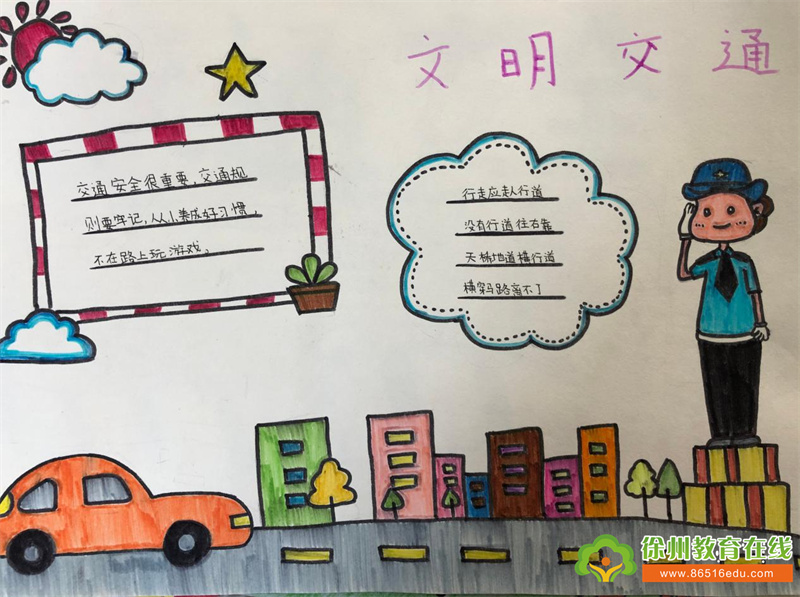 文明交通
交通安全很重要,交通规
则要牢记,从小养成好习惯,
不在路上玩游戏。
行走应走人行道
没有行道往右靠
天桥地道横行道
横穿马路离不了
徐州教育在线
www.86516edu.com